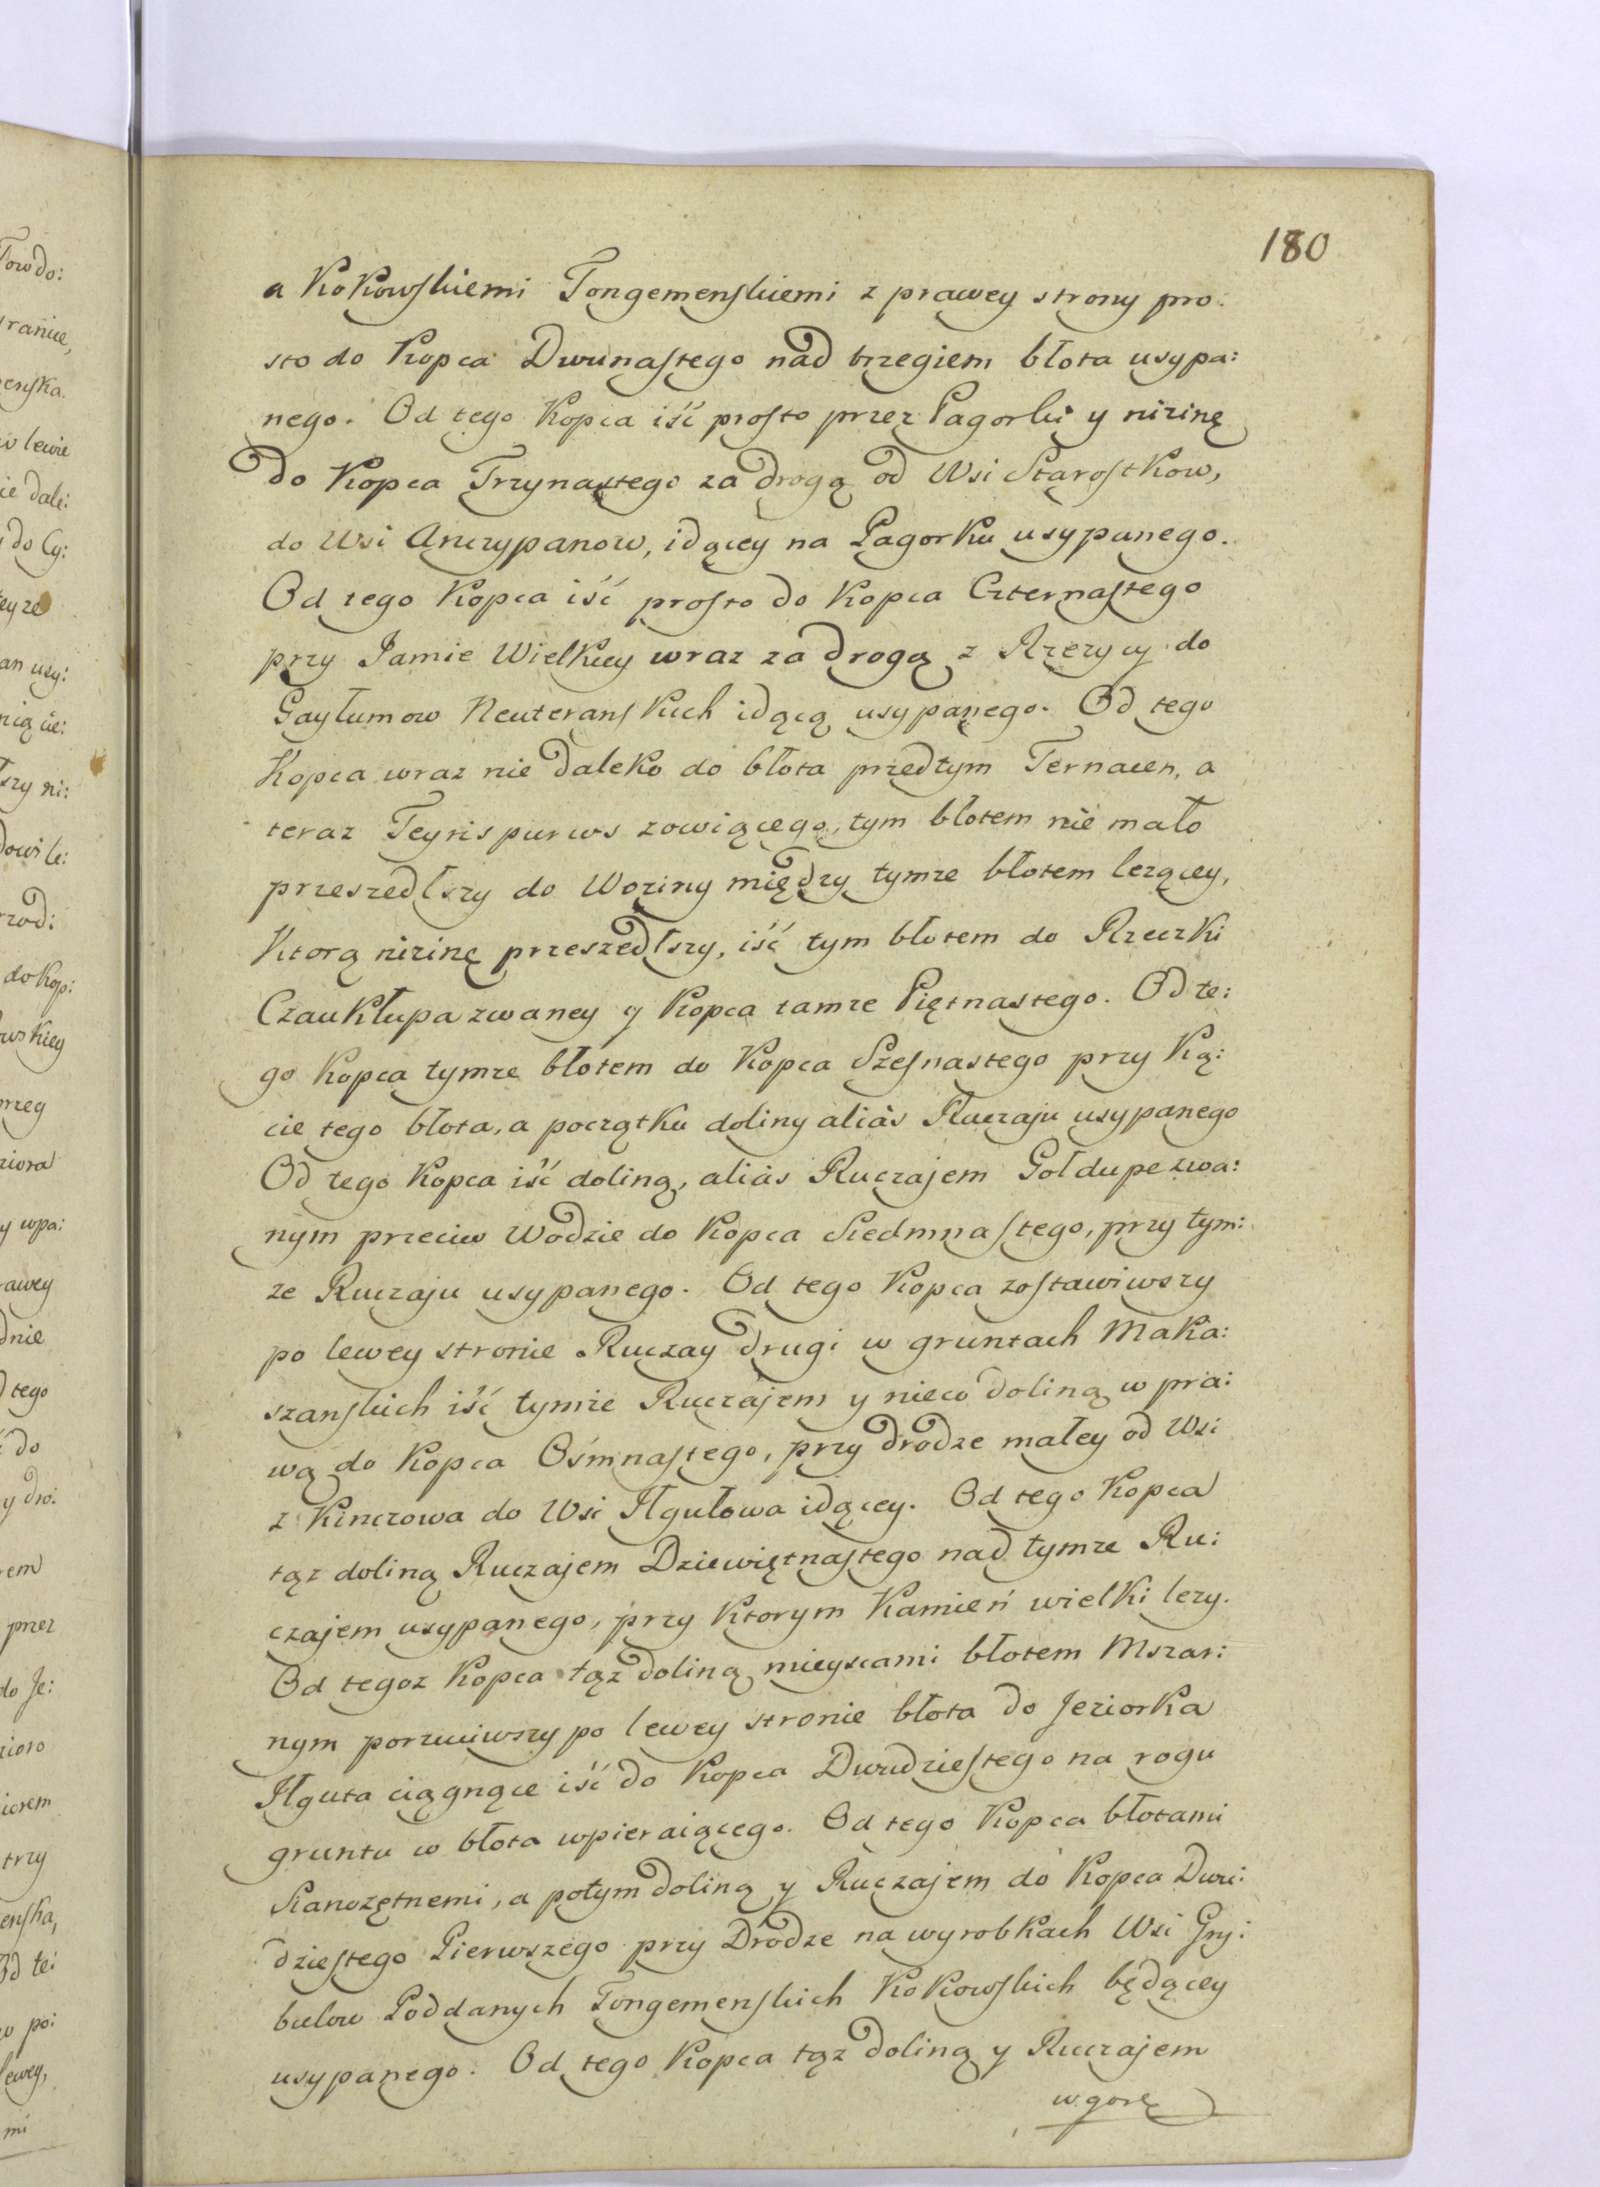 180
a Kokowskiemi Tongemenskiemi z prawey strony pro:
sto do Kopca Dwunastego nad brzegiem błota usypa:
nego. Od tego Kopca iść prosto przez Pagorki y nizinę
do Kopca Trzynastego za drogą od Wsi Starostkow,
do Wsi Anczypanow, idącey na Pagorku usypanego.
Od tego Kopca iść prosto do Kopca Czternastego
przy Jamie Wielkiey wraz za drogą z Rzezycy do
Gayłumow Neuteranskich idącą usypanego. Od tego
Kopca wraz nie daleko do błota przedtym Ternacen, a
teraz Teyrispurws zowiącego, tym błotem nie mało
przeszedłszy do Woziny między tymze błotem lezącey,
Ktorą nizinę przeszedłszy, iść tym błotem do Rzeczki
Czaukłupa zwaney y Kopca tamze Piętnastego. Od te:
go Kopca tymze błotem do Kopca Szesnastego przy Ką:
cie tego błota, a początku doliny aliàs Ruczaju usypanego
Od tego Kopca iść doliną, aliàs Ruczajem Gołdupe zwa:
nym przeciw Wodzie do Kopca Siedmnastego, przy tym:
ze Ruczaju usypanego. Od tego Kopca zostawiwszy
po lewey stronie Ruczay drugi w gruntach Maka:
szanskich iść tymże Ruczajem y nieco doliną w pra:
wą do Kopca Ośmnastego, przy drodze małey od Wsi
z Kinczowa do Wsi Ilgułowa idącey. Od tego Kopca
tąz doliną Ruczajem Dziewiętnastego nad tymze Ru:
czajem usypanego, przy Ktorym Kamień wielki lezy.
Od tegoz Kopca tąz doliną mieyscami błotem Mszar:
nym porzuciwszy po lewey stronie błota do Jeziorka
Ilguta ciągnące iść do Kopca Dwudziestego na rogu
gruntu w błota wpieraiącego. Od tego Kopca błotami
Sianozętnemi, a potym doliną y Ruczajem do Kopca Dwu:
dziestego Pierwszego przy Drodze na wyrobkach Wsi Gry:
bulow Poddanych Tongemenskich Kokowskich będącey
usypanego. Od tego Kopca tąz doliną y Ruczajem
w gorę